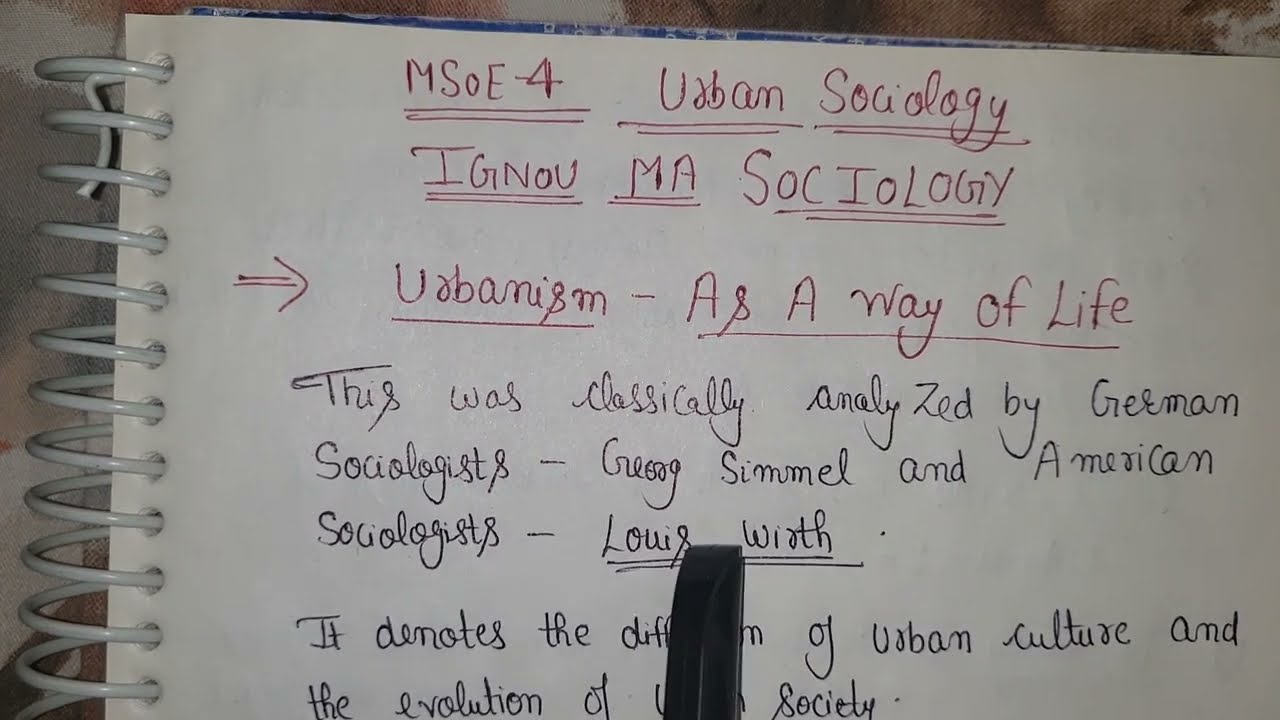 MSOE-4 Urban Sociology
IGNOU MA SOCIOLOGY
⇒ Urbanism - As A Way of Life
This was classically analyzed by German
Sociologists - Georg Simmel and American
Sociologists - Louis Wirth.
It denotes the of Urban culture and
the evolution of Society.